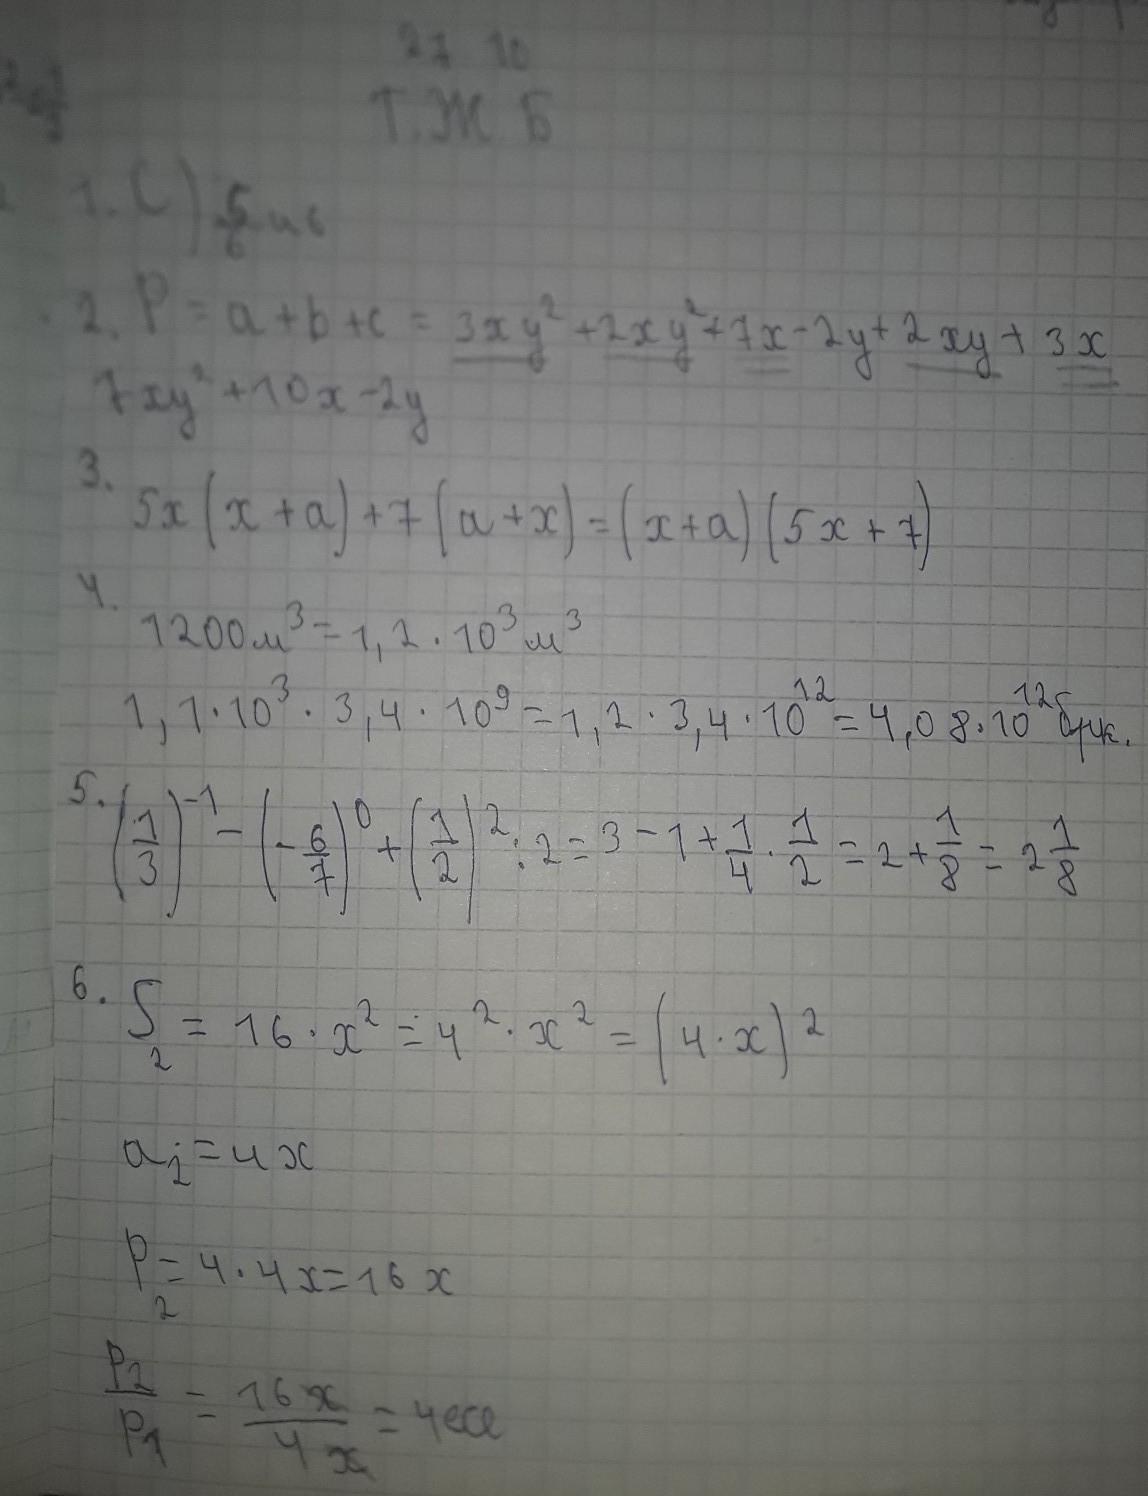 27 10
Т.Ж Б
1. C)
2. P = a+b+c = 3xy²+2xy²+7x-2y+2xy+3x
7xy²+10x-2y
3.
5x(x+a)+7(a+x)=(x+a)(5x+7)
4.
1200м³=1,2·10³м³
1,1·10³·3,4·10⁹=1,2·3,4·10¹²=4,08·10¹²
5. (1/3)⁻¹-(-6/7)⁰+(1/2)²:2=3-1+1/4·1/2=2+1/8=2 1/8
6. S₂=16·x²=4²·x²=(4·x)²
a₂=4x
P₂=4·4x=16x
P₂/P₁=16x/4x=4есе